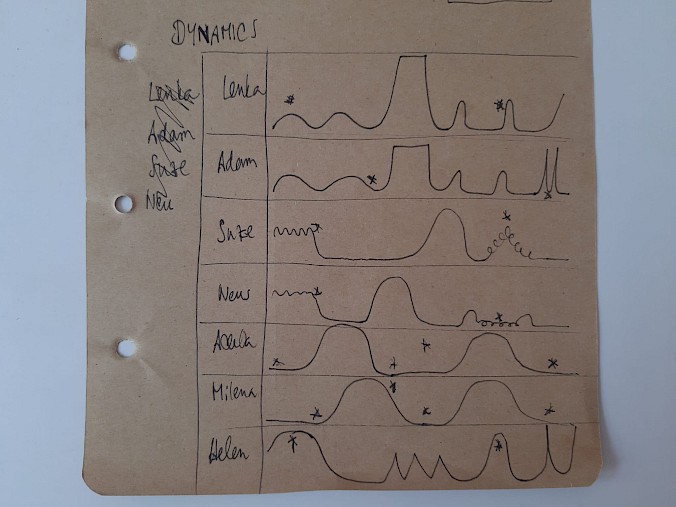 DYNAMICS
Lenka
Adam
Suze
Neu
Lenka
Adam
Suze
Neus
Milena
Helen